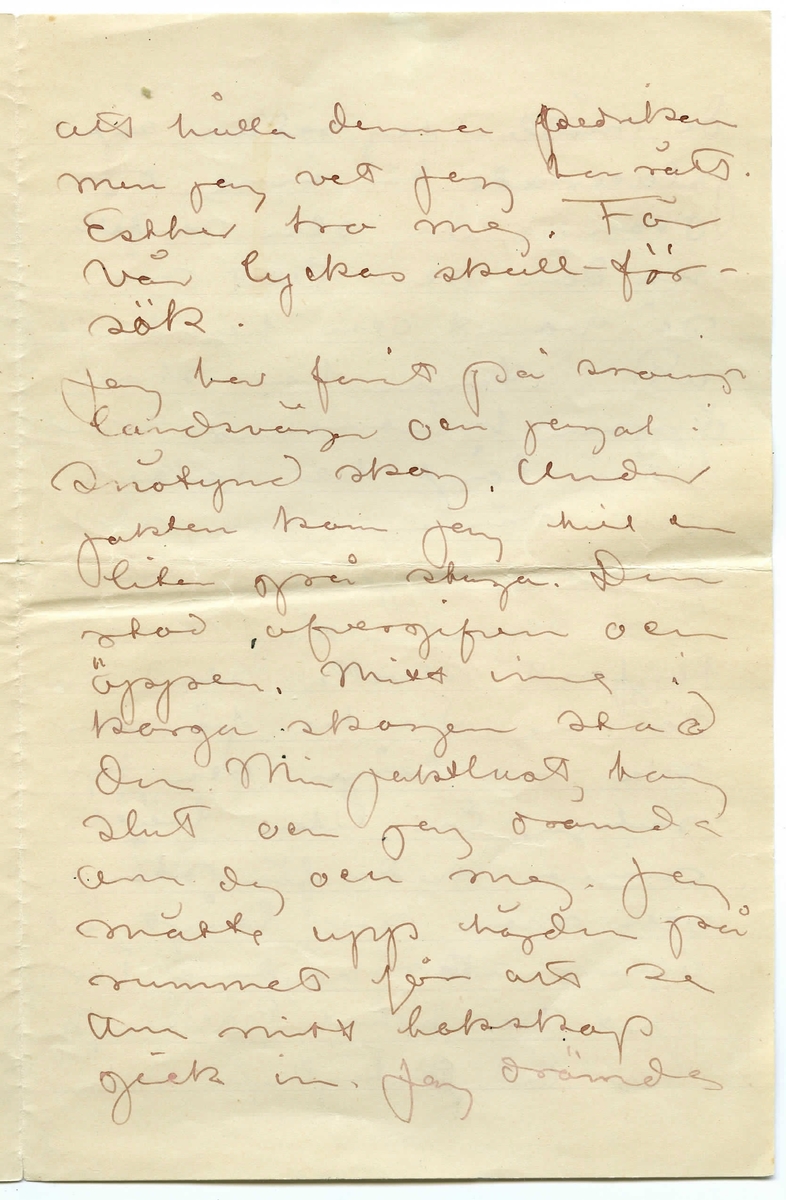 att hålla denna predikan
men jag vet jag har rätt.
Esther tro mig. För
vår lyckas skull – för-
sök.
Jag har farit på
landsvägar och jagat i
snötynd skog. Under
jakten kom jag till en
liten grå stuga. Den
stod öfvergifven och
öppen. Mitt inne i
karga skogen stod
den. Min jaktlust tog
slut och jag drömde
om dig och mig. Jag
mätte upp höjden på
rummet för att se
om mitt bokskåp
gick in. Jag drömde